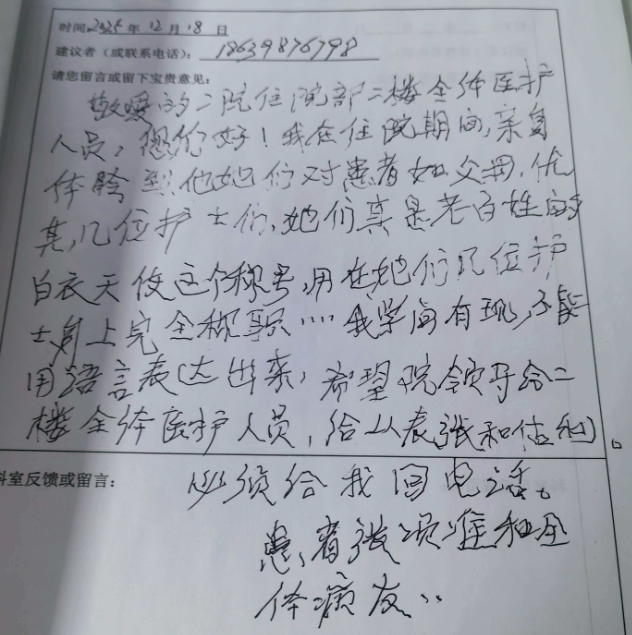 时间: 2025年 12月 18日
建议者（或联系电话）: 18639876798
请您留言或留下宝贵意见:
敬爱的二院住院部二楼全体医护
人员，您们好！我在住院期间，亲身
体验到他她们对患者如父母，优
其，几位护士们，她们真是老百姓的
白衣天使这个称号，用在她们几位护
士身上完全称职……我学问有现，不能
用语言表达出来，希望院领导给二
楼全体医护人员，给以表张和估利。
科室反馈或留言:
必须给我回电话。
患者张 准和全
体病友..